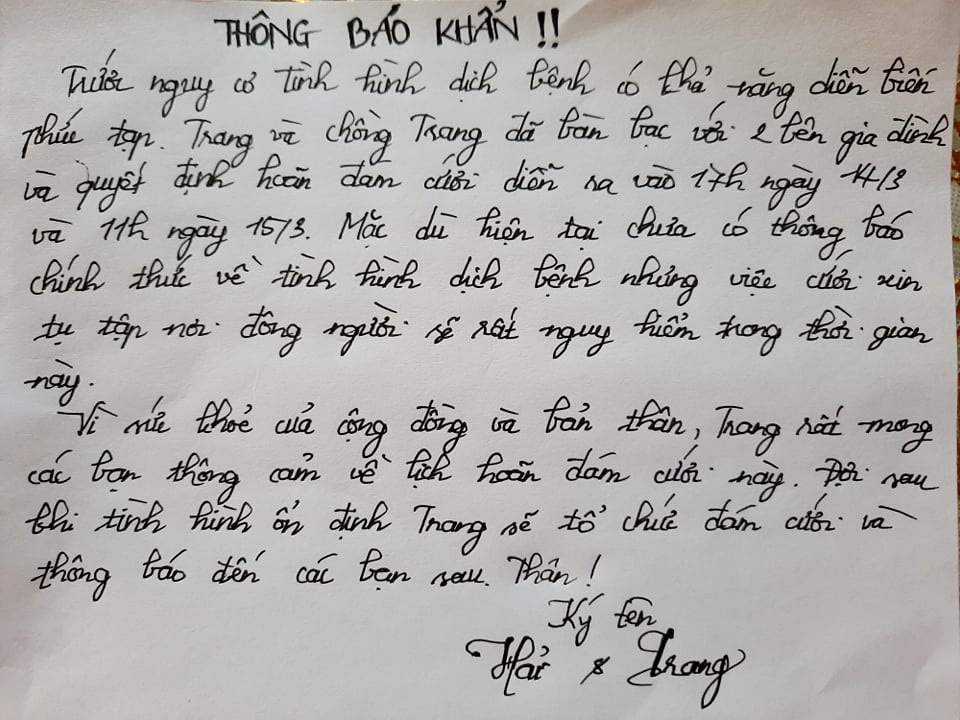 THÔNG BÁO KHẨN !!
Trước nguy cơ tình hình dịch bệnh có khả năng diễn biến
phức tạp. Trang và chồng Trang đã bàn bạc với 2 bên gia đình
và quyết định hoãn đám cưới diễn ra vào 17h ngày 14/3
và 11h ngày 15/3. Mặc dù hiện tại chưa có thông báo
chính thức về tình hình dịch bệnh nhưng việc cưới xin
tụ tập nơi đông người sẽ rất nguy hiểm trong thời gian
này.
Vì sức khoẻ của cộng đồng và bản thân, Trang rất mong
các bạn thông cảm về lịch hoãn đám cưới này. Đợi sau
khi tình hình ổn định Trang sẽ tổ chức đám cưới và
thông báo đến các bạn sau. Thân !
Ký tên
Hải & Trang